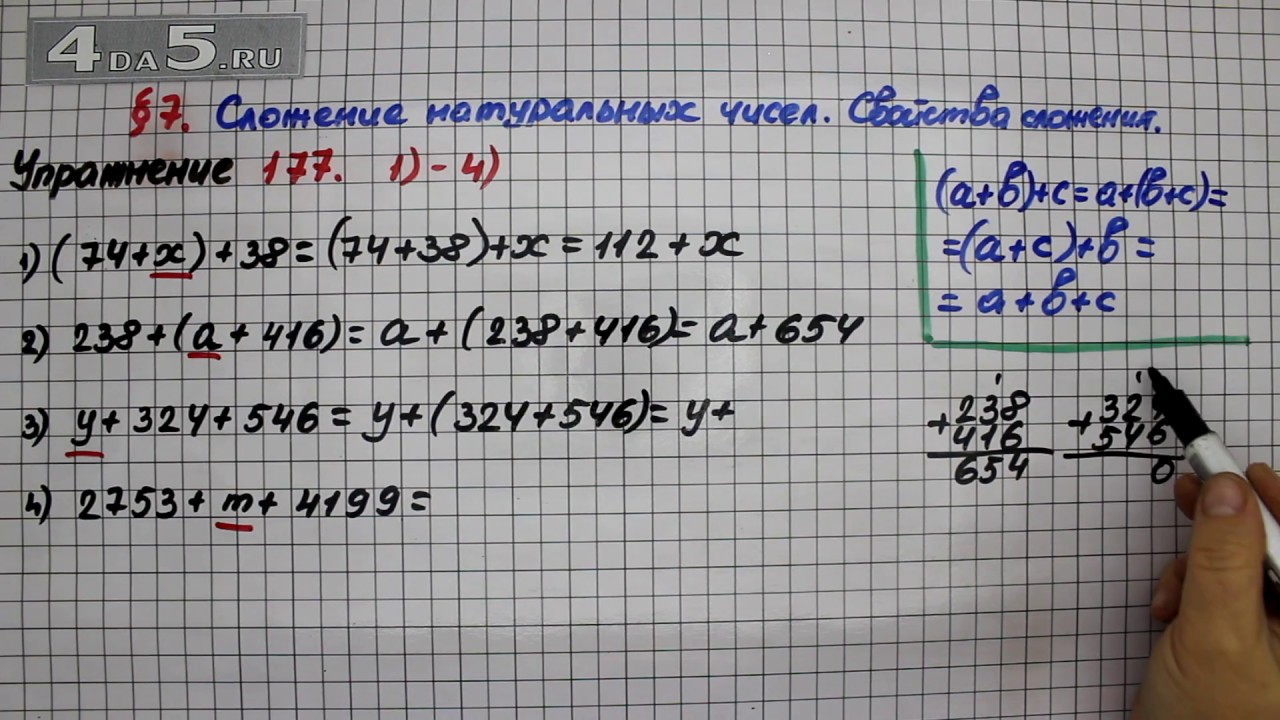 4DA5.RU
§7. Сложение натуральных чисел. Свойства сложения.
Упражнение 177. 1) - 4)
1) (74+x)+38=(74+38)+x=112+x
2) 238+(a+416)=a+(238+416)=a+654
3) y+324+546=y+(324+546)=y+
4) 2753+m+4199=
(a+b)+c=a+(b+c)=
=(a+c)+b=
=a+b+c
1
+238
416
654
1
+32
546
0